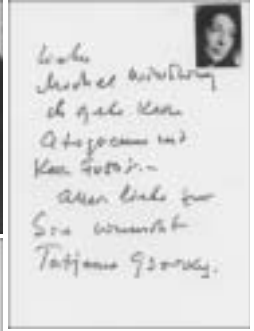 Liebe
ich gebe kein
Autogramm und
kein Foto.
Alles Liebe für
Sie wünscht
Tatjana Gsovsky.